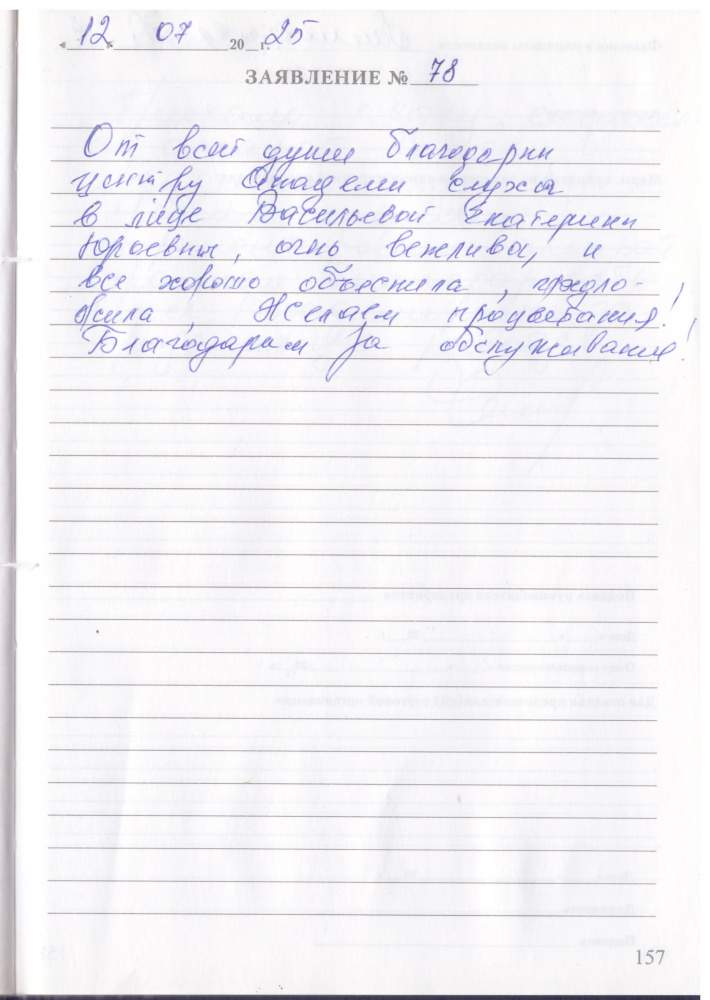 « 12 » 07 20 г. 25
ЗАЯВЛЕНИЕ № 78
От всей души благодарны
центру Академи слуха
в лице Васильевой Екатерины
Юрьевны, очнь вежлива, и
все хорошо объеснила, предло-
жила, Желаем процветания!
Благодарим за обслуживания!
157